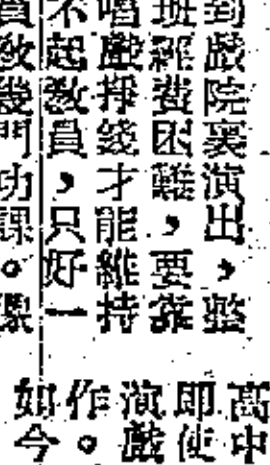 到戲院裏演出，整
班經費困難，要靠
唱戲掙錢才能維持
不起教員，只好一
員教幾門功課。
高中
即使
演戲
作。
如今